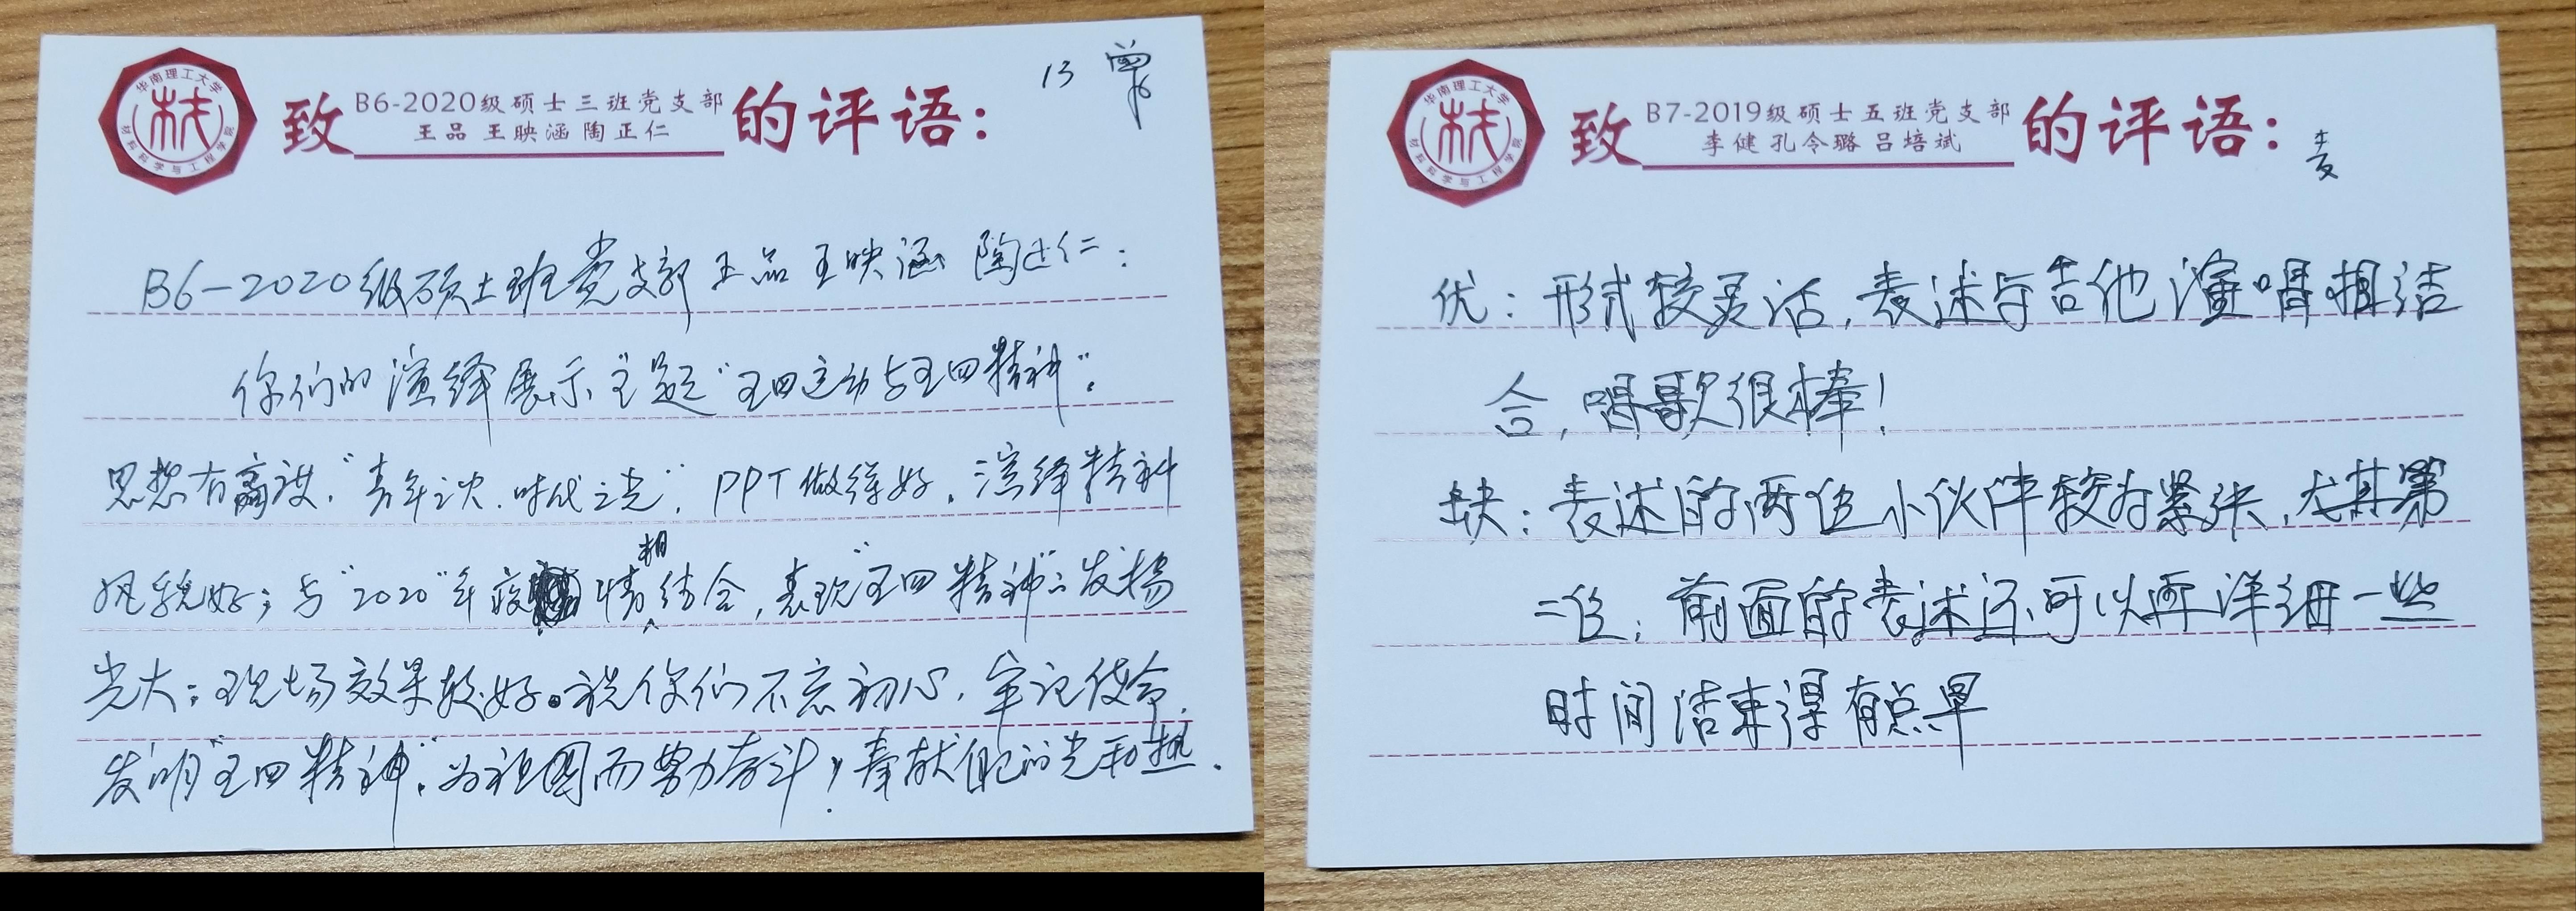 华南理工大学
材料科学与工程学院
致 B6-2020级硕士三班党支部 的评语：
王品 王映涵 陶正仁
13 曾
B6-2020级硕士班党支部 王品 王映涵 陶正仁：
你们的演绎展示主题“五四运动与五四精神”。
思想有高度，“青年之火，时代之光”，PPT做得好，演绎精神
风貌好；与“2020”年疫情相结合，表现“五四精神”的发扬
光大；现场效果较好。祝你们不忘初心，牢记使命，
发明“五四精神”，为祖国而努力奋斗，奉献自己的光和热。
华南理工大学
材料科学与工程学院
致 B7-2019级硕士五班党支部 的评语：
李健 孔令璐 吕培斌
麦
优：形式较灵活，表述与吉他演唱相结
合，唱歌很棒！
缺：表述的两位小伙伴较为紧张，尤其第
二位；前面的表述还可以再详细一些
时间结束得有点早